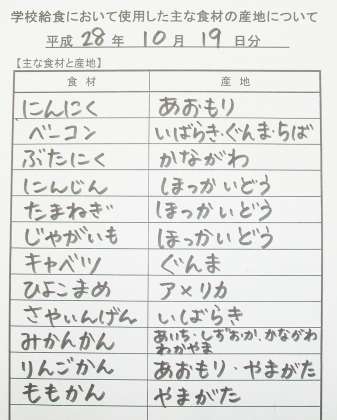 学校給食において使用した主な食材の産地について
平成 28 年 10 月 19 日分
【主な食材と産地】
食材 産地
にんにく あおもり
ベーコン いばらき・ぐんま・ちば
ぶたにく かながわ
にんじん ほっかいどう
たまねぎ ほっかいどう
じゃがいも ほっかいどう
キャベツ ぐんま
ひよこまめ アメリカ
さやいんげん いばらき
みかんかん あいち・しずおか・かながわ
わかやま
りんごかん あおもり・やまがた
ももかん やまがた